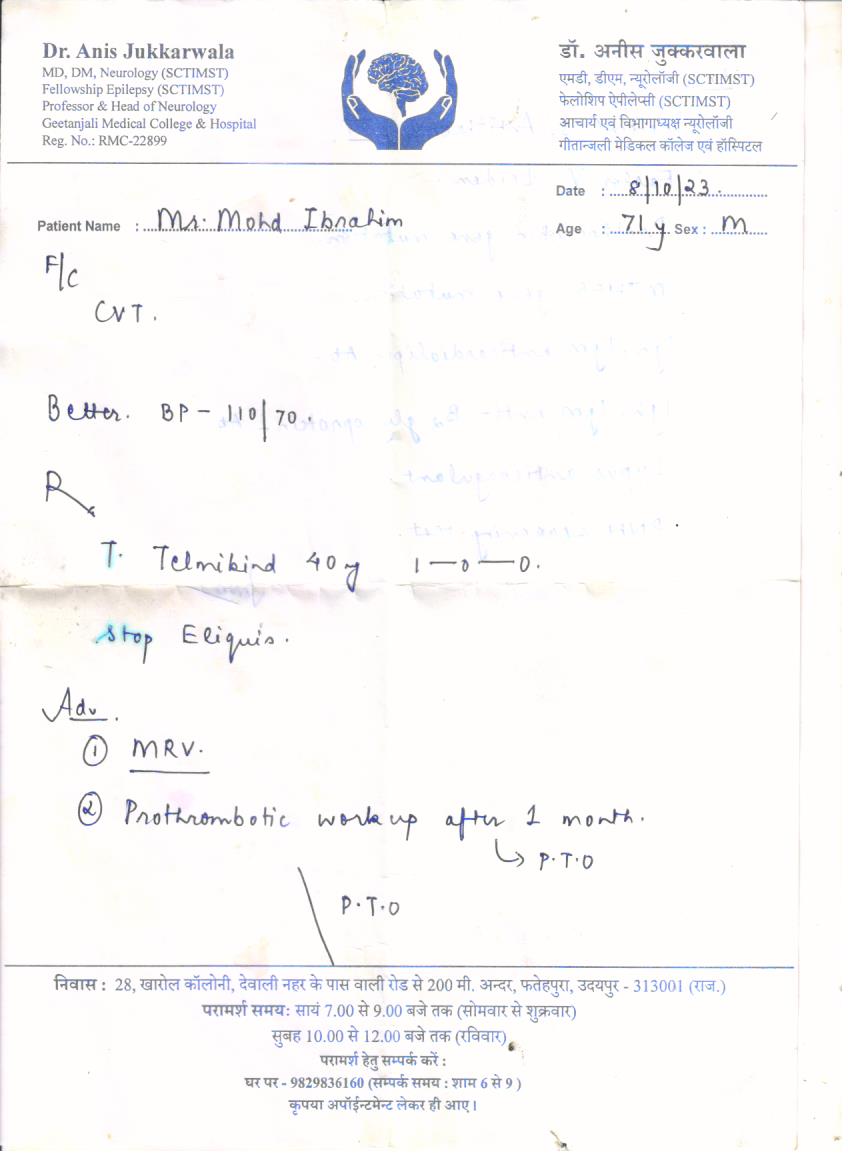 Dr. Anis Jukkarwala
MD, DM, Neurology (SCTIMST)
Fellowship Epilepsy (SCTIMST)
Professor & Head of Neurology
Geetanjali Medical College & Hospital
Reg. No.: RMC-22899
डॉ. अनीस जुक्करवाला
एमडी, डीएम, न्यूरोलॉजी (SCTIMST)
फेलोशिप ऐपीलेप्सी (SCTIMST)
आचार्य एवं विभागाध्यक्ष न्यूरोलॉजी
गीतान्जली मेडिकल कॉलेज एवं हॉस्पिटल
Date : 8/10/23.
Patient Name : Mr. Mohd Ibrahim
Age : 71 y Sex : M
F/C
CVT.
Better. BP - 110/70.
R
T. Telmikind 40 mg 1-0-0.
Stop Eliquis.
Adv.
① MRV.
② Prothrombotic workup after 1 month.
↳ P.T.O
P.T.O
निवास : 28, खारोल कॉलोनी, देवाली नहर के पास वाली रोड से 200 मी. अन्दर, फतेहपुरा, उदयपुर - 313001 (राज.)
परामर्श समय: सायं 7.00 से 9.00 बजे तक (सोमवार से शुक्रवार)
सुबह 10.00 से 12.00 बजे तक (रविवार)
परामर्श हेतु सम्पर्क करें :
घर पर - 9829836160 (सम्पर्क समय : शाम 6 से 9 )
कृपया अपॉईन्टमेन्ट लेकर ही आए।